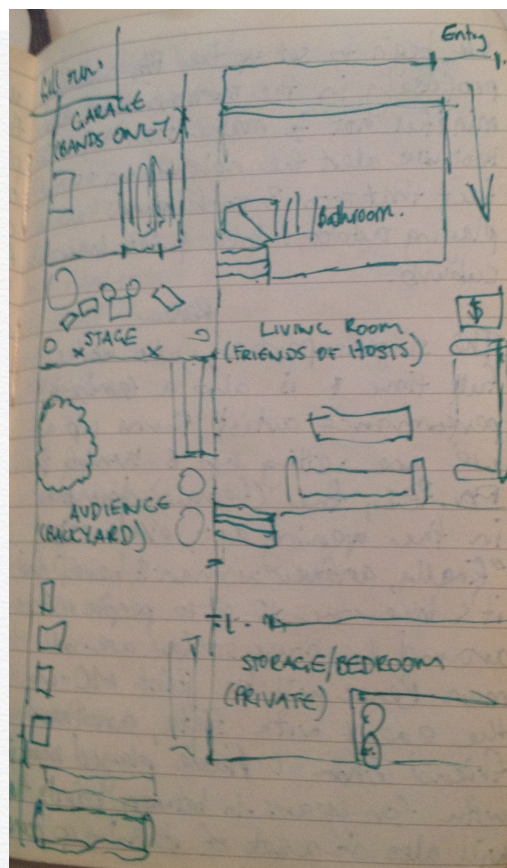 Entry
GARAGE
(BANDS ONLY)
Bathroom.
$
STAGE
LIVING ROOM
(FRIENDS OF HOSTS)
AUDIENCE
(BACKYARD)
STORAGE/BEDROOM
(PRIVATE)